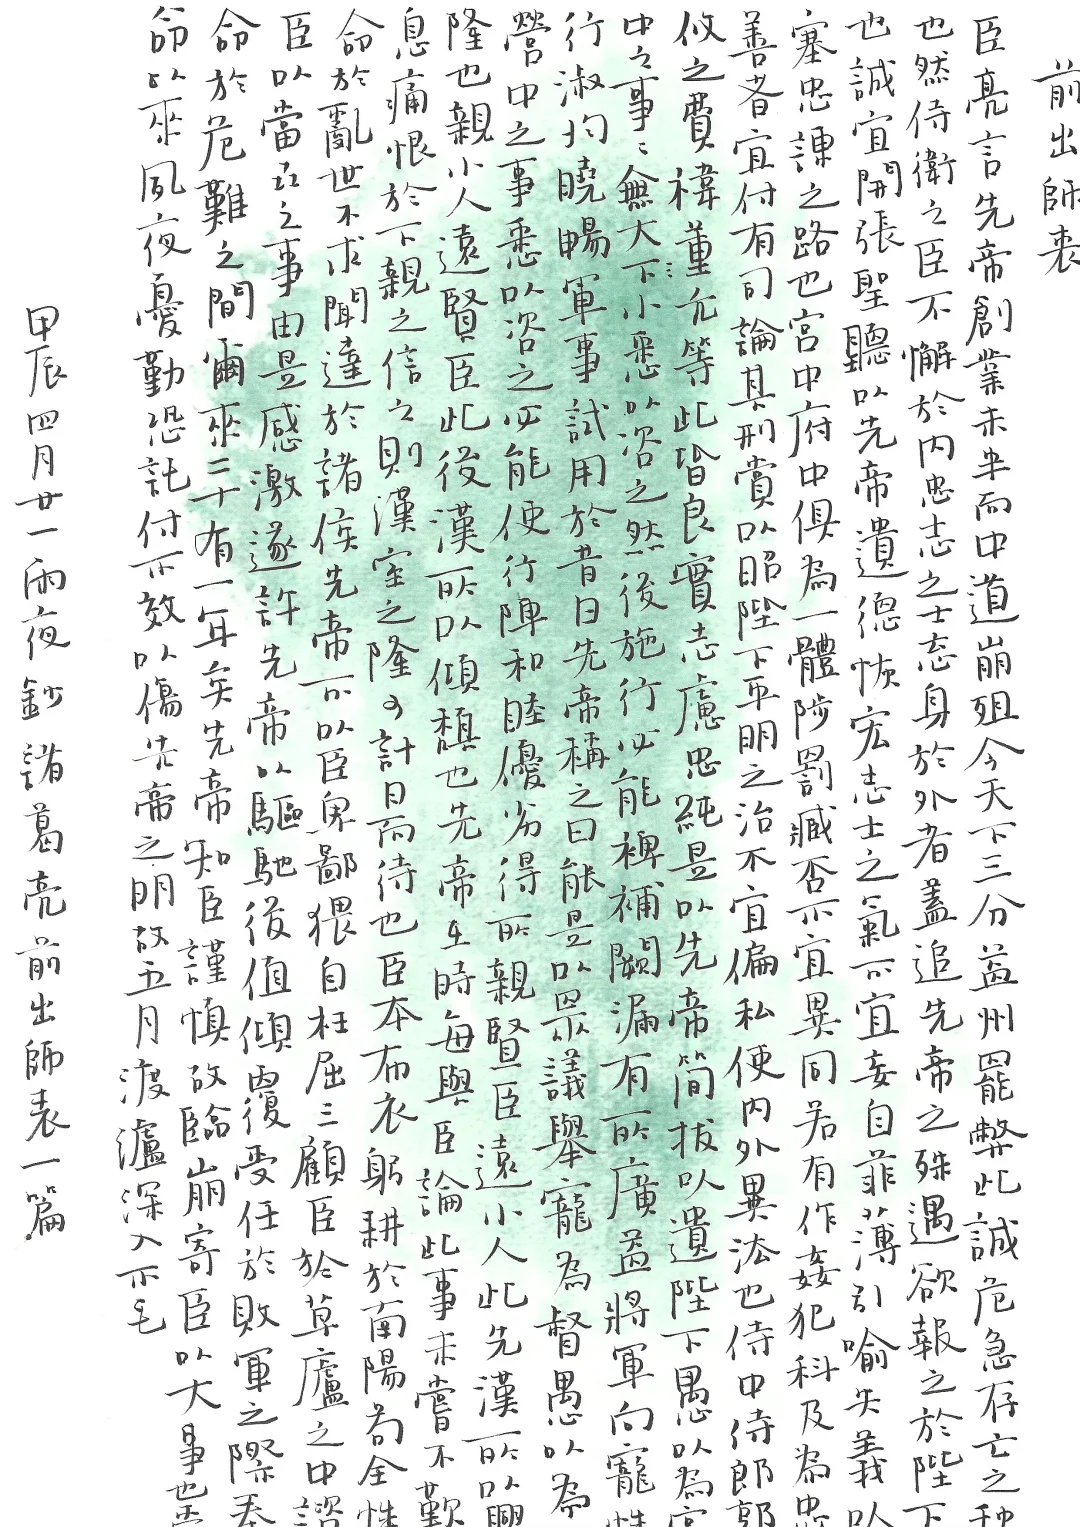 前出師表
臣亮言先帝創業未半而中道崩殂今天下三分益州罷弊此誠危急存亡之秋
也然侍衛之臣不懈於内忠志之士忘身於外者蓋追先帝之殊遇欲報之於陛下
也誠宜開張聖聽以先帝遺德恢宏志士之氣不宜妄自菲薄引喻失義以
塞忠諫之路也宮中府中俱為一體陟罰臧否不宜異同若有作姦犯科及為忠
善者宜付有司論其刑賞以昭陛下平明之治不宜偏私使内外異法也侍中侍郎郭
攸之費禕董允等此皆良實志慮忠純是以先帝簡拔以遺陛下愚以為宮
中之事〻無大下小悉以咨之然後施行必能裨補闕漏有所廣益將軍向寵性
行淑均曉暢軍事試用於昔日先帝稱之曰能是以眾議舉寵為督愚以為
營中之事悉以咨之必能使行陣和睦優劣得所親賢臣遠小人此先漢所以興
隆也親小人遠賢臣此後漢所以傾頹也先帝在時每與臣論此事未嘗不歎
息痛恨於下親之信之則漢室之隆可計日而待也臣本布衣躬耕於南陽苟全性
命於亂世不求聞達於諸侯先帝不以臣卑鄙猥自枉屈三顧臣於草廬之中諮
臣以當世之事由是感激遂許先帝以驅馳後值傾覆受任於敗軍之際奉
命於危難之間爾來二十有一年矣先帝知臣謹慎故臨崩寄臣以大事也受
命以來夙夜憂勤恐託付不效以傷先帝之明故五月渡瀘深入不毛
甲辰四月廿一雨夜鈔諸葛亮前出師表一篇